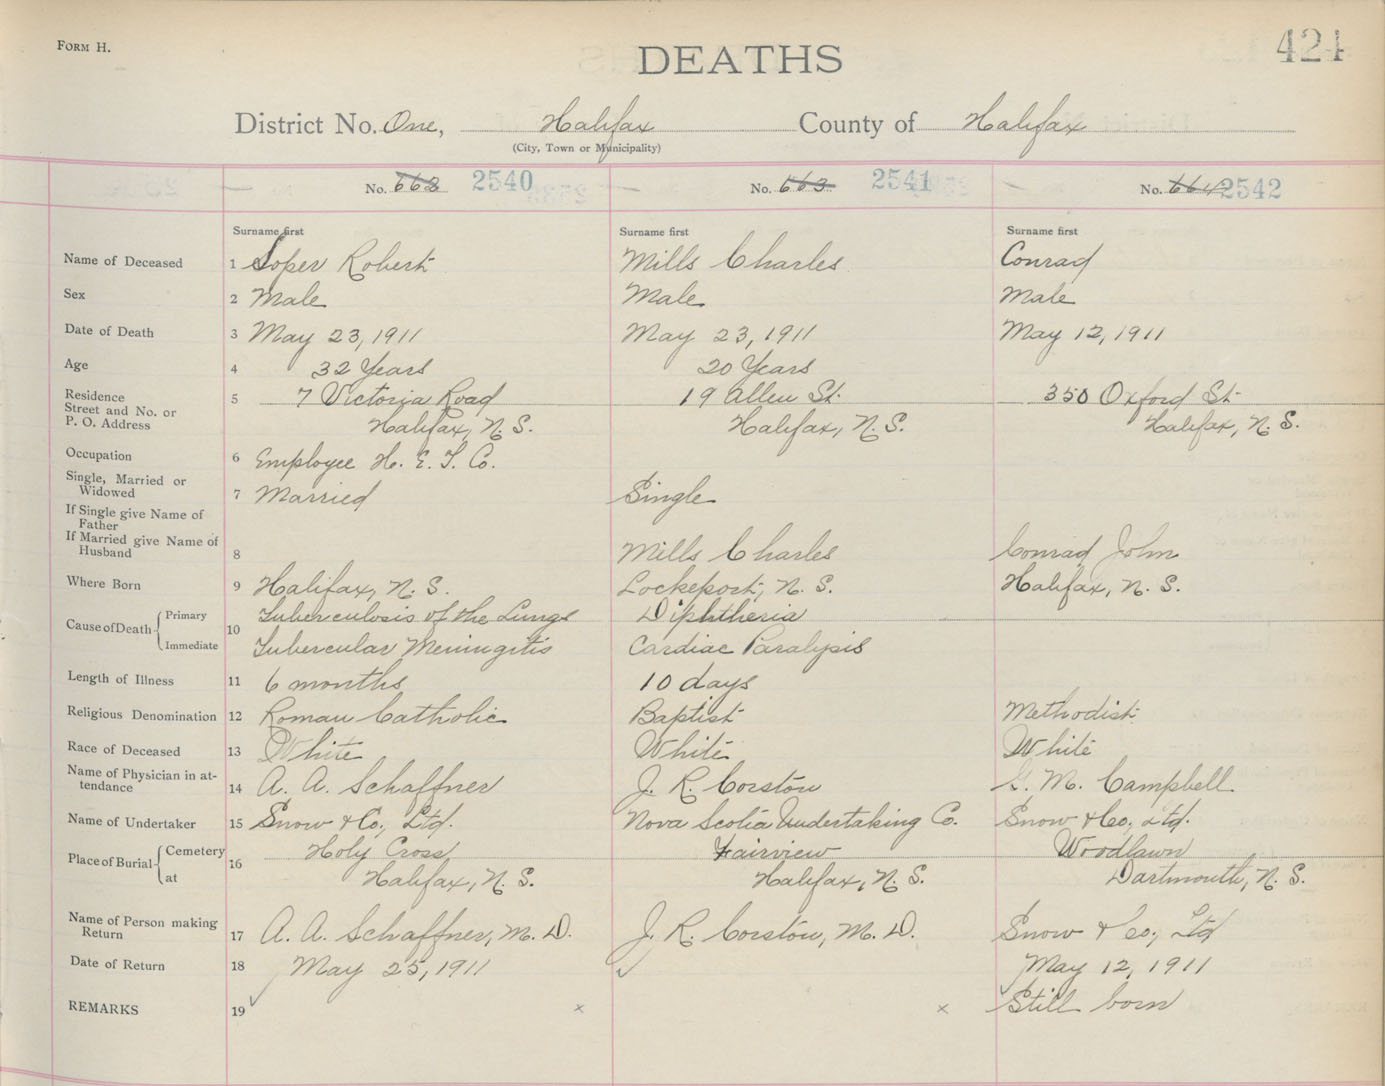 FORM H.
DEATHS
424
District No. One, Halifax County of Halifax
(City, Town or Municipality)
No. 662 2540 No. 663 2541 No. 664 2542
Surname first Surname first Surname first
Name of Deceased 1 Soper Robert Mills Charles Conrad
Sex 2 Male Male Male
Date of Death 3 May 23, 1911 May 23, 1911 May 12, 1911
Age 4 32 Years 20 Years
Residence
Street and No. or
P. O. Address
5 7 Victoria Road 19 Allen St. 350 Oxford St
Halifax, N. S. Halifax, N. S. Halifax, N. S.
Occupation 6 Employee H. E. T. Co.
Single, Married or
Widowed 7 Married Single
If Single give Name of
Father
If Married give Name of
Husband 8 Mills Charles Conrad John
Where Born 9 Halifax, N. S. Lockeport, N. S. Halifax, N. S.
Cause of Death 10
Primary Tuberculosis of the Lungs Diphtheria
Immediate Tubercular Meningitis Cardiac Paralysis
Length of Illness 11 6 months 10 days
Religious Denomination 12 Roman Catholic Baptist Methodist
Race of Deceased 13 White White White
Name of Physician in at-
tendance 14 A. A. Schaffner J. R. Corston G. M. Campbell
Name of Undertaker 15 Snow & Co., Ltd. Nova Scotia Undertaking Co. Snow & Co., Ltd.
Place of Burial 16
Cemetery Holy Cross Fairview Woodlawn
at Halifax, N. S. Halifax, N. S. Dartmouth, N. S.
Name of Person making
Return 17 A. A. Schaffner, M. D. J. R. Corston, M. D. Snow & Co., Ltd
Date of Return 18 May 25, 1911 May 12, 1911
REMARKS 19 x x Still born